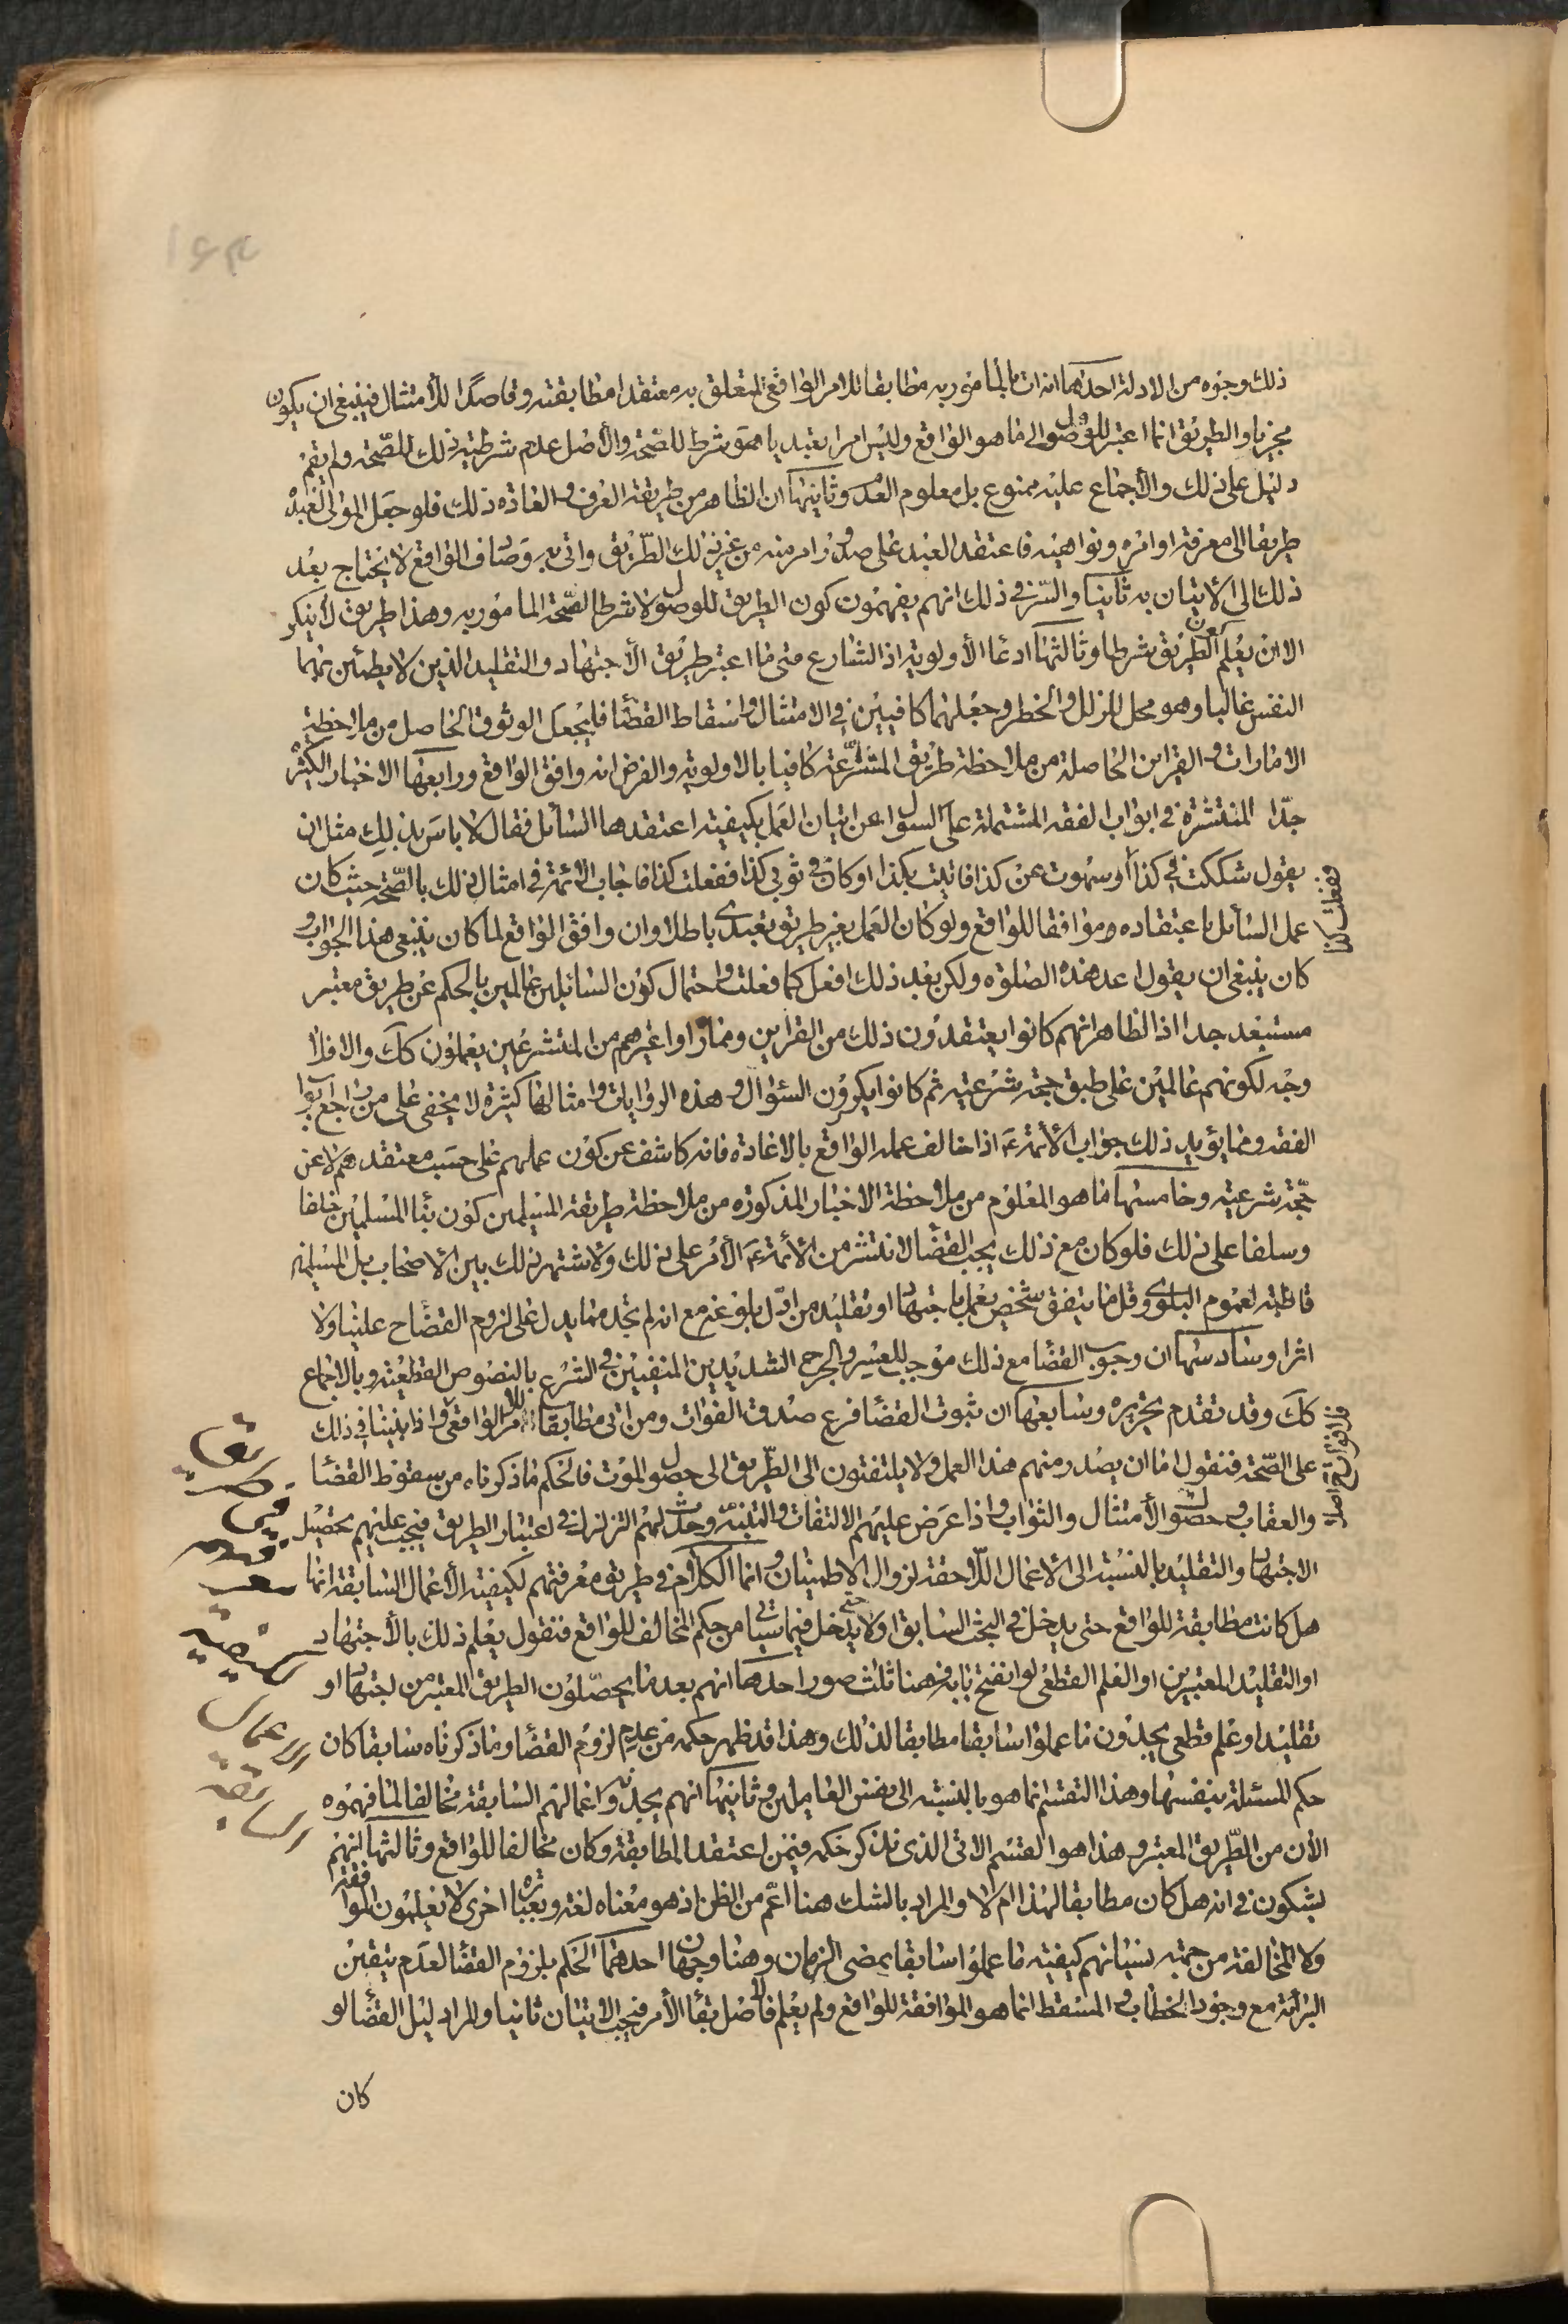 ذلك وجوه من الادلة احدها انه ات بالمامور به مطابقا للامر الواقعى المتعلق به معتقدا مطابقته وقاصدا للامتثال فينبغى ان يكون
مجزيا والطريق انما اعتبر للوصول الى ما هو الواقع وليس امرا تعبديا هو شرط للصحة والأصل عدم شرطية ذلك للصحة ولم يقم
دليل على ذلك والأجماع عليه ممنوع بل معلوم العدم وثانيها ان الظاهر من طريقة العرف والعادة ذلك فلو جعل المولى لعبده
طريقا الى معرفة اوامره ونواهيه فاعتقد العبد على صدور امر منه من غير ذلك الطريق واتى به وصادف الواقع لا يحتاج بعد
ذلك الى الأتيان به ثانيا والسر فى ذلك انهم يفهمون كون الطريق للوصول لا شرطا لصحة المامور به وهذا طريق لا ينكر
الا ان يعلم كون الطريق شرطا وثالثها ادعا الأولوية اذ الشارع متى ما اعتبر طريق الأجتهاد والتقليد الذين لا يطمئن بهما
النفس غالبا وهو محل للزلل والخطر وجعلهما كافيين فى الامتثال واسقاط القضا فليجعل الوثوق الحاصل من ملاحظة
الامارات والقراين الحاصلة من ملاحظة طريق المتشرعة كافيا بالاولوية والفرض انه وافق الواقع ورابعها الاخبار الكثيرة
جدا المنتشرة فى ابواب الفقه المشتملة على السوال عن اتيان العمل بكيفية اعتقدها السائل فقال لا باس بذلك مثل ان
يقول شككت فى كذا أو سهوت عن كذا فاتيت بكذا او كان فى ثوبى كذا ففعلت كذا فاجاب الأئمة فى امثال ذلك بالصحة حيث كان
وفعلت كذا
عمل السائل باعتقاده وموافقا للواقع ولو كان العمل بغير طريق تعبدى باطلا وان وافق الواقع لما كان ينبغى هذا الجواب و
كان ينبغى ان يقول اعد هذه الصلوة ولكن بعد ذلك افعل كما فعلت واحتمال كون السائلين عالمين بالحكم عن طريق معتبر
مستبعد جدا اذ الظاهر انهم كانوا يعتقدون ذلك من القراين ومما راوا غيرهم من المتشرعين يعملون كك والا فلا
وجه لكونهم عالمين على طبق حجة شرعية ثم كانوا يكررون السؤال وهذه الروايات وامثالها كثيرة لا يخفى على من راجع ابواب
الفقه ومما يؤيد ذلك جواب الأئمة عَ اذا خالف عمله الواقع بالاعادة فانه كاشف عن كون عملهم على حسب معتقدهم لا عن
حجة شرعية وخامسها ما هو المعلوم من ملاحظة الاخبار المذكورة من ملاحظة طريقة المسلمين كون بنا المسلمين خلفا
وسلفا على ذلك فلو كان مع ذلك يجب القضا لانتشر من الأئمة عَ الأمر على ذلك ولاشتهر ذلك بين الأصحاب بل المسلمين
قاطبة لعموم البلوى وقل ما يتفق شخص يعمل باجتهاد او تقليد من اول بلوغه مع انه لم نجد مما يدل على لزوم القضا ح عينا ولا
اثرا وسادسها ان وجوب القضا مع ذلك موجب للعسر والحرج الشديدين المنفيين فى الشرع بالنصوص القطعية وبالاجماع
كك وقد تقدم تحريره وسابعها ان ثبوت القضا فرع صدق الفوات ومن اتى مطابقا للامر الواقعى واذا بنينا فى ذلك
على الصحة فنقول اما ان يصدر منهم هذا العمل ولا يلتفتون الى الطريق الى حصول الموت فالحكم ما ذكرناه من سقوط القضا
والعقاب وحصول الأمتثال والثواب واذا عرض عليهم الالتفات والتنبه وحدث لهم التزلزل فى اعتبار الطريق فيجب عليهم تحصيل
الاجتهاد والتقليد بالنسبة الى الأعمال اللاحقة لزوال الاطمينان وانما الكلام فى طريق معرفتهم لكيفية الأعمال السابقة انها
هل كانت مطابقة للواقع حتى يدخل فى البحث السابق اولا حتى يدخل فيما سيأتى من حكم المخالف للواقع فنقول يعلم ذلك بالأجتهاد
او التقليد المعتبرين او العلم القطعى لو انفتح بابه فهنا ثلث صور احدها انهم بعد ما يحصلون الطريق المعتبر من اجتهاد او
تقليد او علم قطعى يجدون ما عملوا سابقا مطابقا لذلك وهذا قد ظهر حكمه من عدم لزوم القضا وما ذكرناه سابقا كان
حكم المسئلة بنفسها وهذا التقسيم انما هو بالنسبة الى نفس العاملين وثانيها انهم يجدون اعمالهم السابقة مخالفا لما فهموه
الأن من الطريق المعتبر وهذا هو القسم الاتى الذى نذكر حكمه فيمن اعتقد المطابقة وكان مخالفا للواقع وثالثها انهم
يشكون فى انه هل كان مطابقا لهذا ام لا والمراد بالشك هنا اعم من الظن اذ هو معناه لغة وبعبارة اخرى لا يعلمون الموافقة
ولا المخالفة من جهة نسيانهم كيفية ما عملوا سابقا بمضى الزمان وهنا وجهان احدهما الحكم بلزوم القضا لعدم تيقن
البرائة مع وجود الخطاب والمسقط انما هو الموافقة للواقع ولم يعلم فالاصل بقا الأمر فيجب الاتيان ثانيا والمراد ليل القضا لو
كان